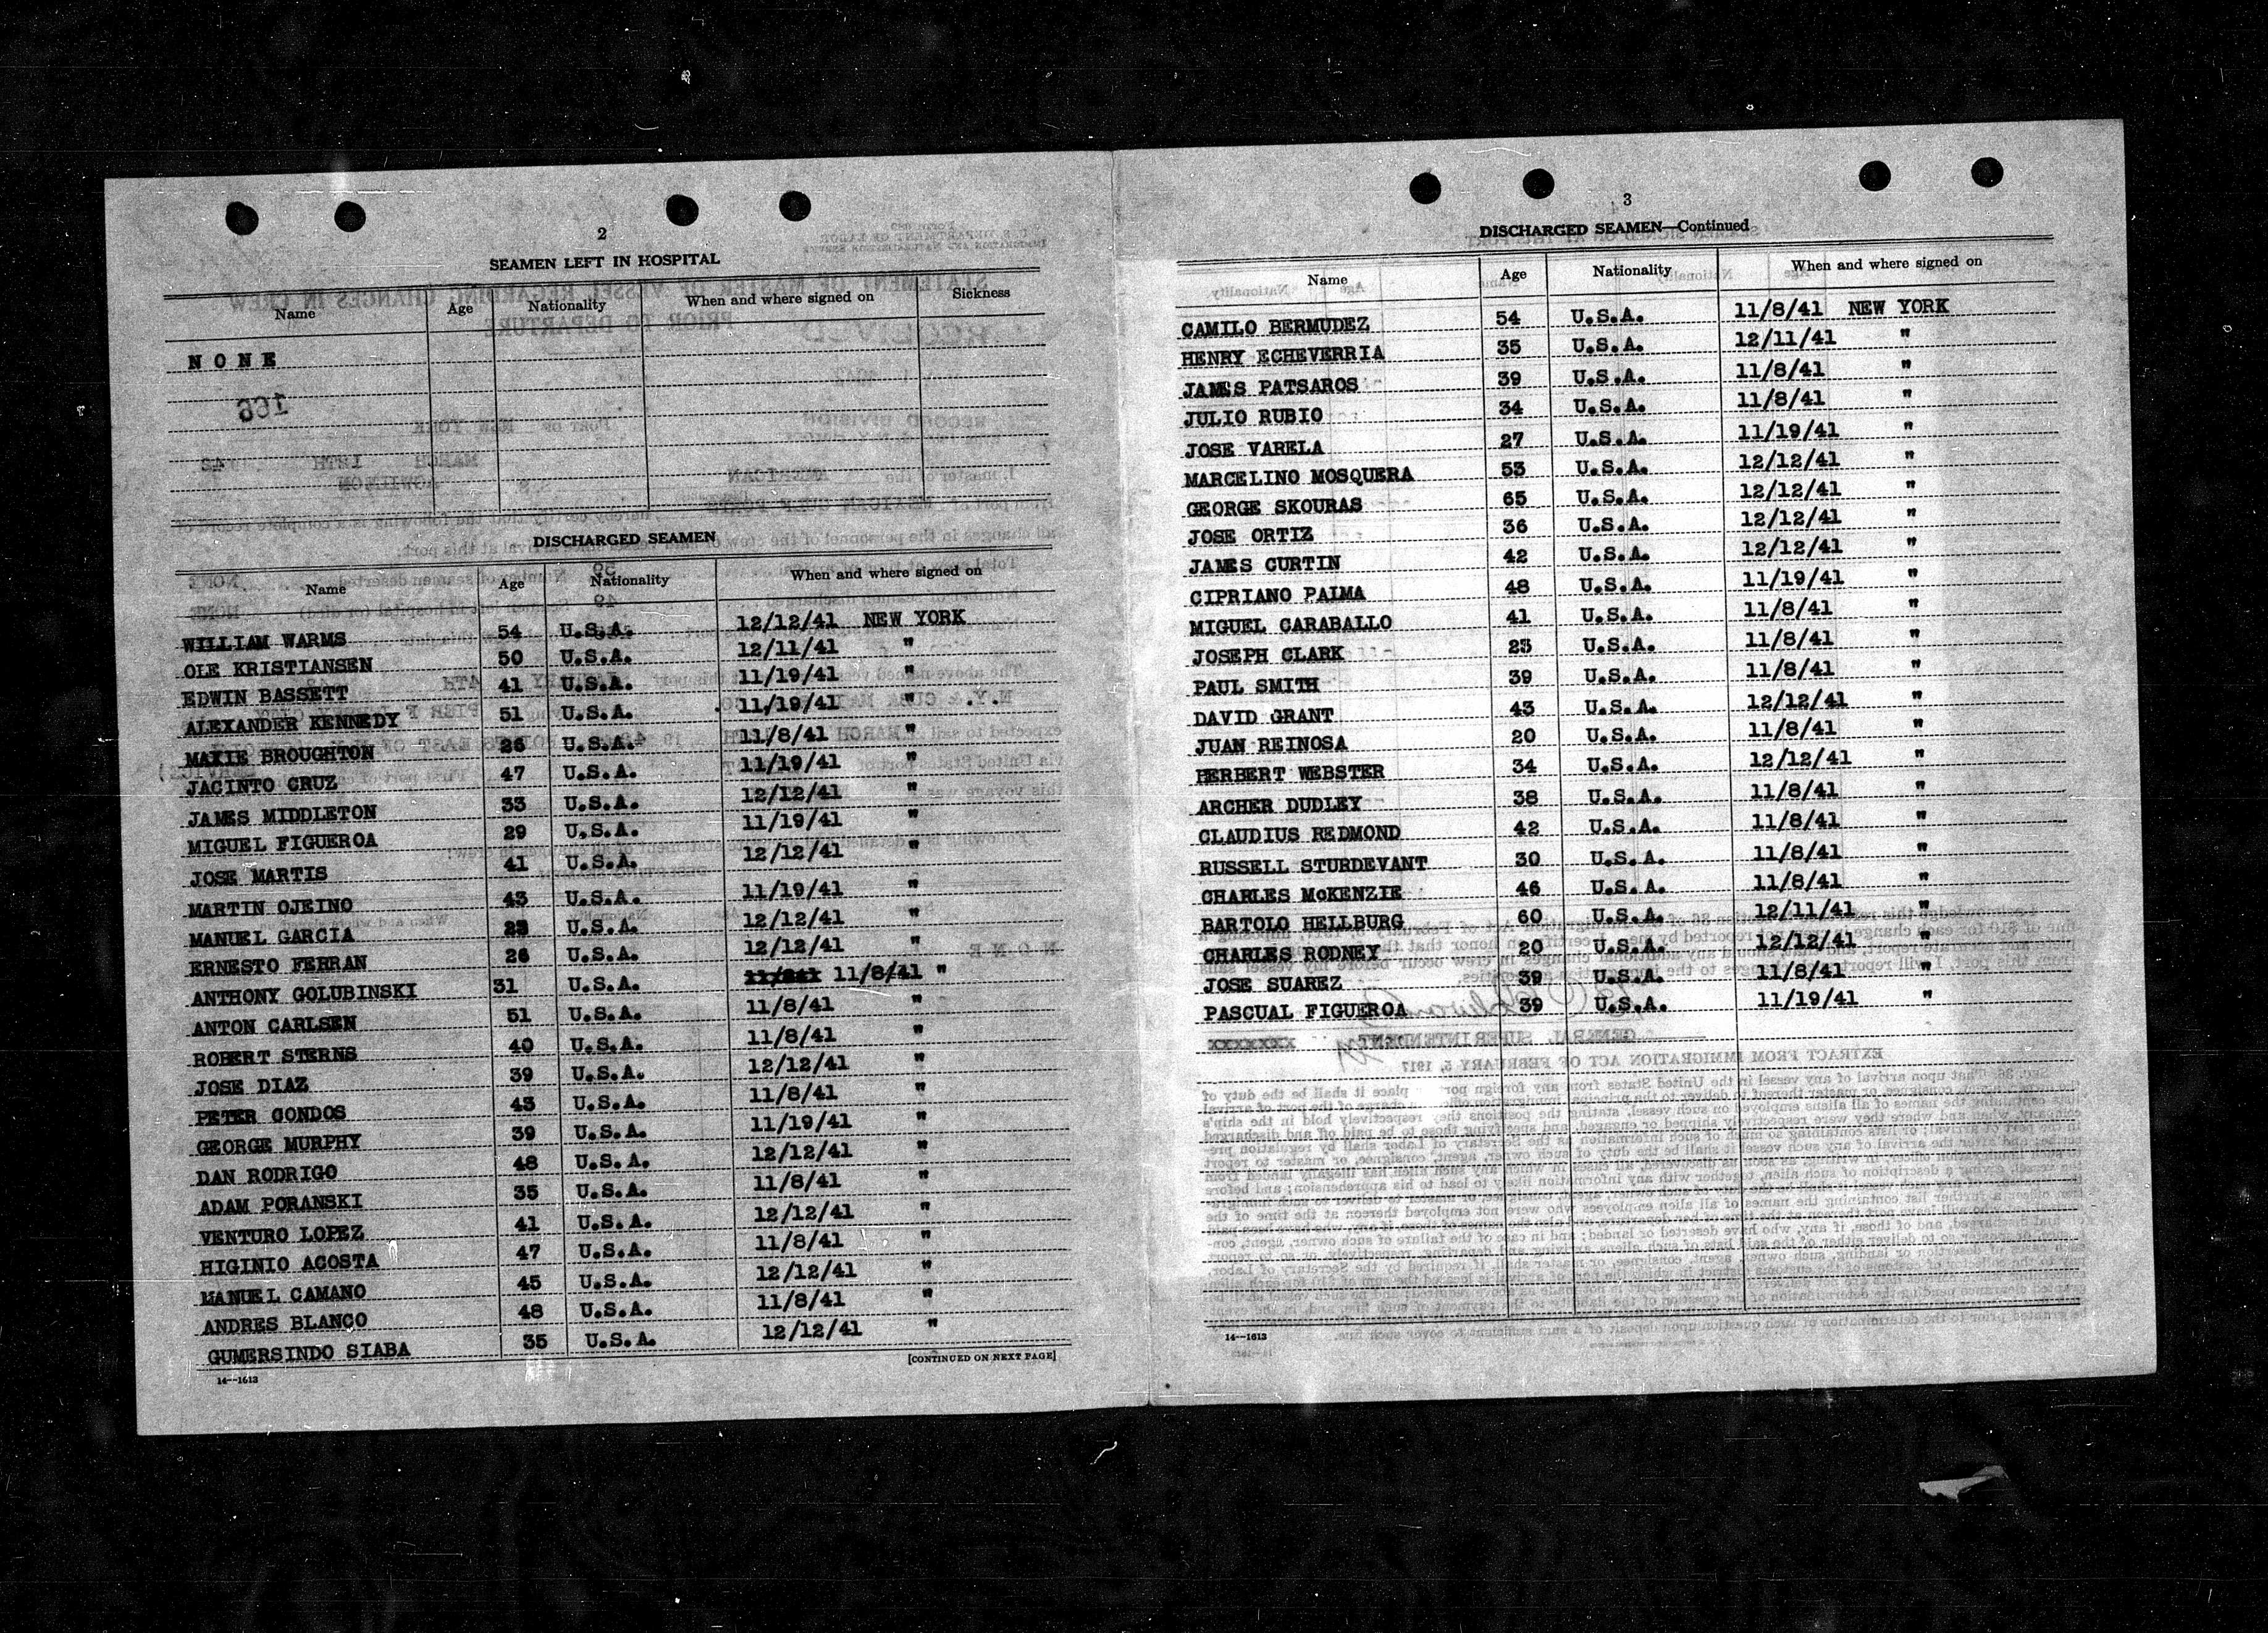 2
SEAMEN LEFT IN HOSPITAL
Name Age Nationality When and where signed on Sickness
N O N E
DISCHARGED SEAMEN
Name Age Nationality When and where signed on
WILLIAM WARMS 54 U.S.A. 12/12/41 NEW YORK
OLE KRISTIANSEN 50 U.S.A. 12/11/41 "
EDWIN BASSETT 41 U.S.A. 11/19/41 "
ALEXANDER KENNEDY 51 U.S.A. 11/19/41 "
MAXIE BROUGHTON 26 U.S.A. 11/8/41 "
JACINTO CRUZ 47 U.S.A. 11/19/41 "
JAMES MIDDLETON 33 U.S.A. 12/12/41 "
MIGUEL FIGUEROA 29 U.S.A. 11/19/41 "
JOSE MARTIS 41 U.S.A. 12/12/41 "
MARTIN OJEINO 43 U.S.A. 11/19/41 "
MANUEL GARCIA U.S.A. 12/12/41 "
ERNESTO FERRAN 26 U.S.A. 12/12/41 "
ANTHONY GOLUBINSKI 31 U.S.A. 11/8/41 "
ANTON CARLSEN 51 U.S.A. 11/8/41 "
ROBERT STERNS 40 U.S.A. 11/8/41 "
JOSE DIAZ 39 U.S.A. 12/12/41 "
PETER GONDOS 43 U.S.A. 11/8/41 "
GEORGE MURPHY 39 U.S.A. 11/19/41 "
DAN RODRIGO 48 U.S.A. 12/12/41 "
ADAM PORANSKI 35 U.S.A. 11/8/41 "
VENTURO LOPEZ 41 U.S.A. 12/12/41 "
HIGINIO ACOSTA 47 U.S.A. 11/8/41 "
MANUEL CAMANO 45 U.S.A. 12/12/41 "
ANDRES BLANCO 48 U.S.A. 11/8/41 "
GUMERSINDO SIABA 35 U.S.A. 12/12/41 "
[CONTINUED ON NEXT PAGE]
14—1613
3
DISCHARGED SEAMEN—Continued
Name Age Nationality When and where signed on
CAMILO BERMUDEZ 54 U.S.A. 11/8/41 NEW YORK
HENRY ECHEVERRIA 35 U.S.A. 12/11/41 "
JAMES PATSAROS 39 U.S.A. 11/8/41 "
JULIO RUBIO 34 U.S.A. 11/8/41 "
JOSE VARELA 27 U.S.A. 11/19/41 "
MARCELINO MOSQUERA 53 U.S.A. 12/12/41 "
GEORGE SKOURAS 65 U.S.A. 12/12/41 "
JOSE ORTIZ 36 U.S.A. 12/12/41 "
JAMES CURTIN 42 U.S.A. 12/12/41 "
CIPRIANO PALMA 48 U.S.A. 11/19/41 "
MIGUEL CARABALLO 41 U.S.A. 11/8/41 "
JOSEPH CLARK 23 U.S.A. 11/8/41 "
PAUL SMITH 39 U.S.A. 11/8/41 "
DAVID GRANT 43 U.S.A. 12/12/41 "
JUAN REINOSA 20 U.S.A. 11/8/41 "
HERBERT WEBSTER 34 U.S.A. 12/12/41 "
ARCHER DUDLEY 38 U.S.A. 11/8/41 "
CLAUDIUS REDMOND 42 U.S.A. 11/8/41 "
RUSSELL STURDEVANT 30 U.S.A. 11/8/41 "
CHARLES McKENZIE 46 U.S.A. 11/8/41 "
BARTOLO HELLBURG 60 U.S.A. 12/11/41 "
CHARLES RODNEY 20 U.S.A. 12/12/41 "
JOSE SUAREZ 39 U.S.A. 11/8/41 "
PASCUAL FIGUEROA 39 U.S.A. 11/19/41 "
14—1613